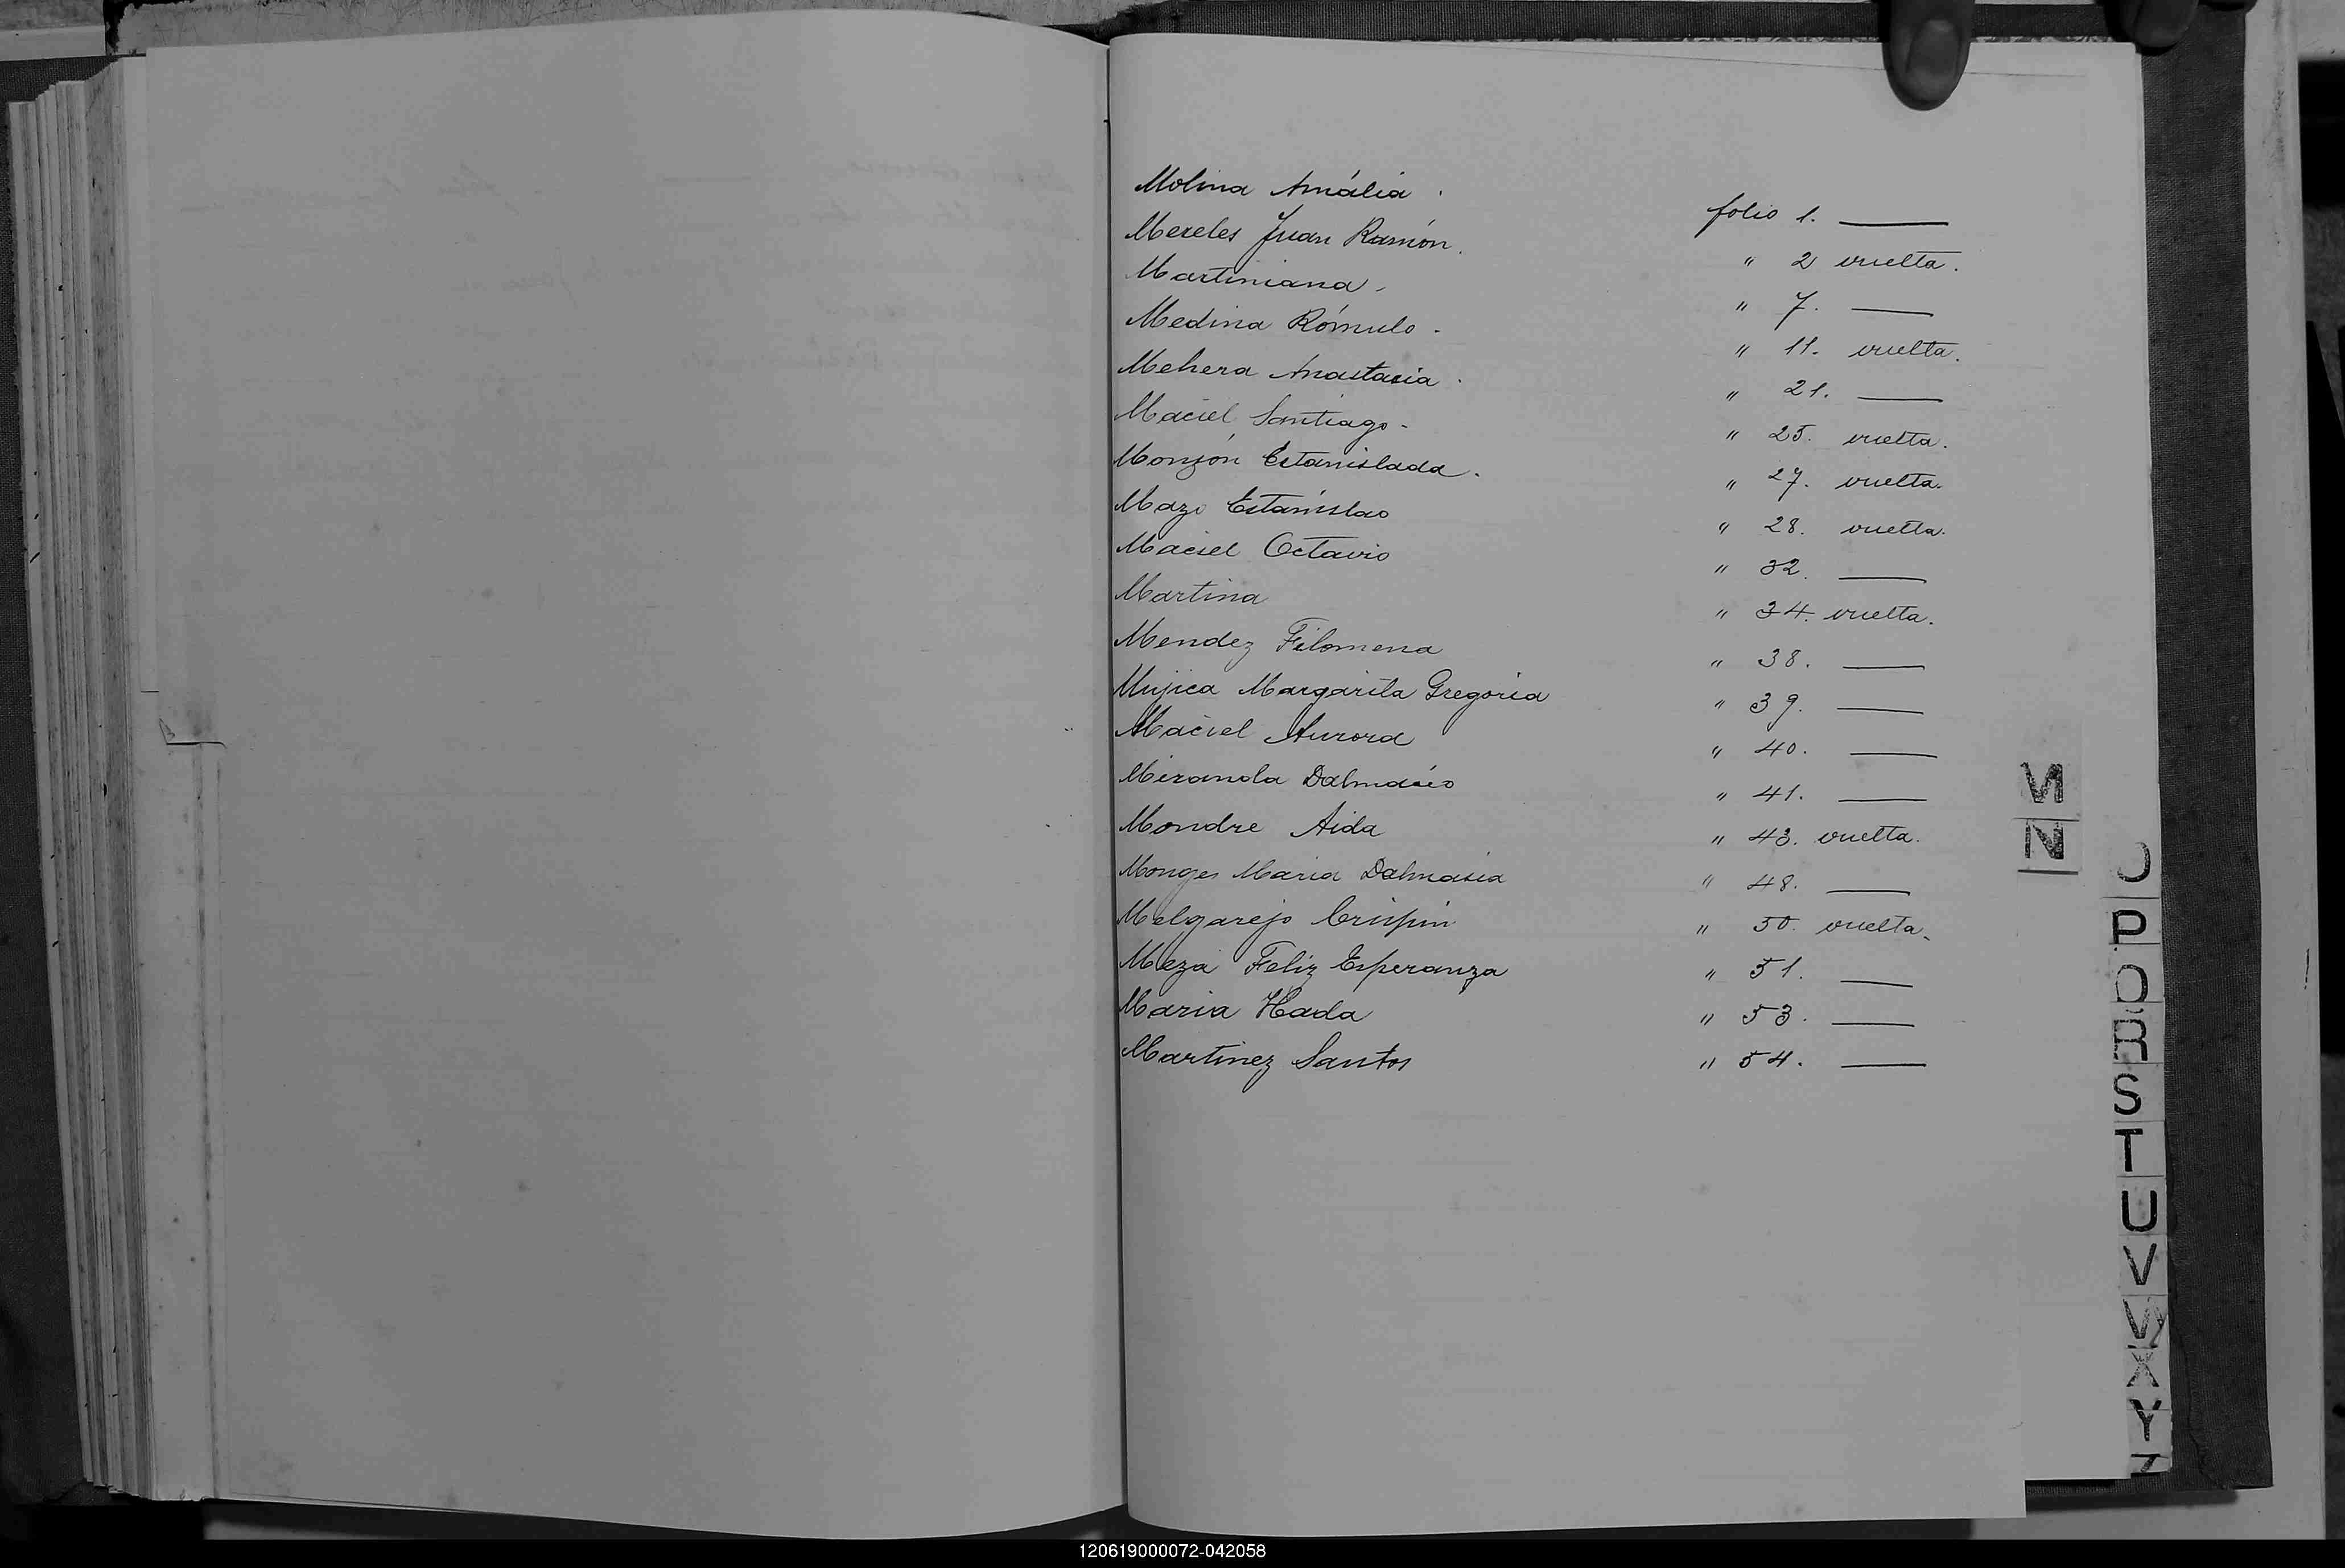 Molina Amália. folio 1. ——
Mereles Juan Ramón. " 2 vuelta.
Martiniana. " 7. ——
Medina Rómulo. " 11. vuelta.
Mehera Anastasia. " 21. ——
Maciel Santiago. " 25. vuelta.
Monzón Estanislada. " 27. vuelta.
Mazo Estánislao " 28. vuelta.
Maciel Octavio " 32. ——
Martina " 34. vuelta.
Mendez Filomena " 38. ——
Mujica Margarita Gregoria " 39. ——
Maciel Aurora " 40. ——
Miranda Dalmacio " 41. ——
Mondre Aida " 43. vuelta.
Monges Maria Dalmasia " 48. ——
Melgarejo Crispin " 50. vuelta.
Meza Feliz Esperanza " 51. ——
Maria Hada " 53. ——
Martinez Santos " 54. ——
N
P
R
S
T
U
V
W
X
Y
Z
120619000072-042058